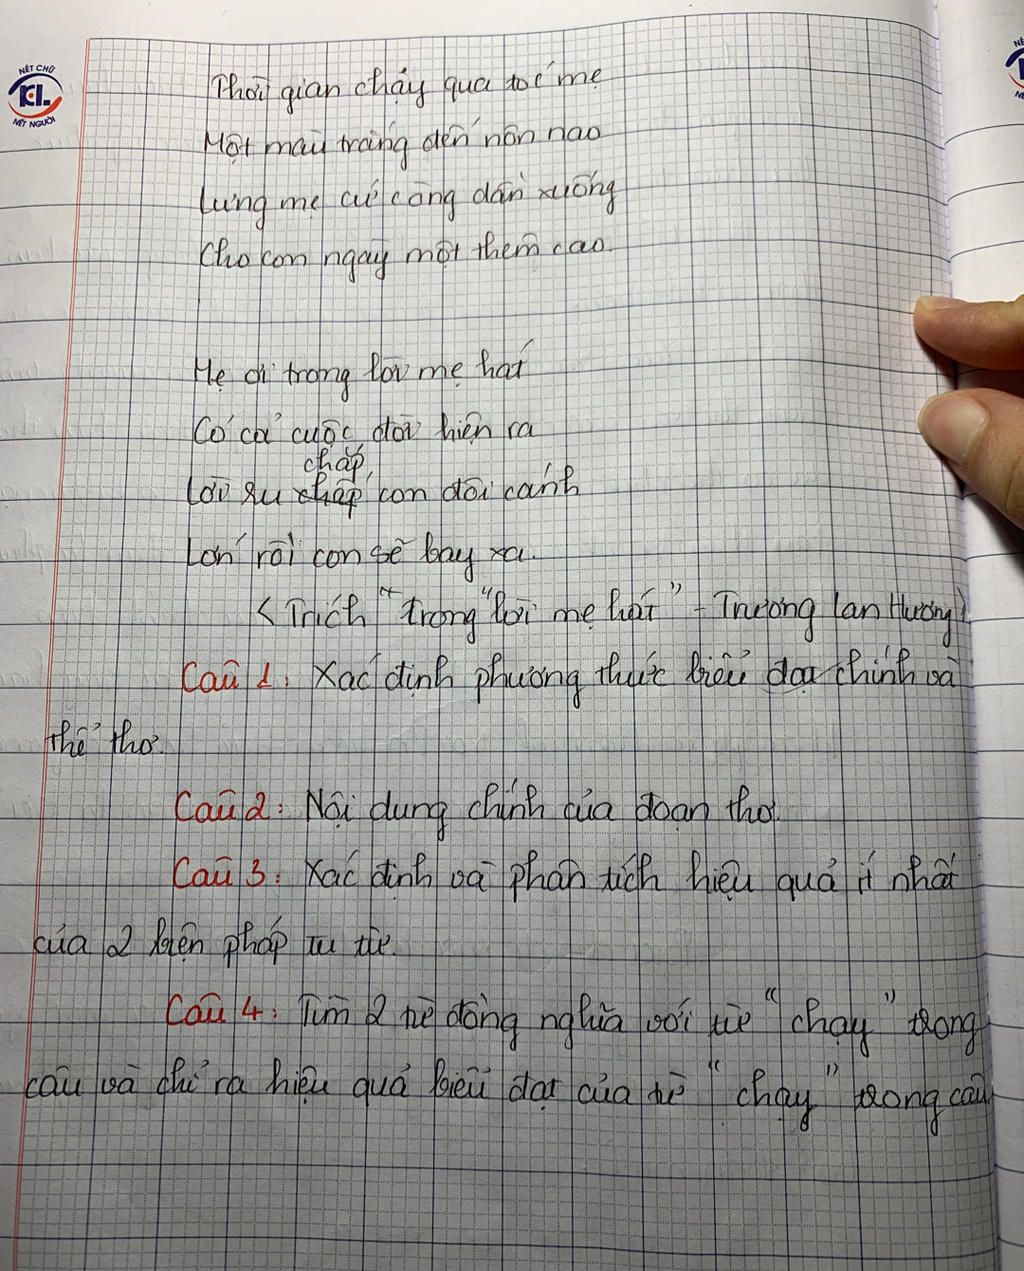 NÉT CHỮ
KL
NÉT NGƯỜI
Thời gian chảy qua tóc mẹ
Một màu trắng đến nôn nao
Lưng mẹ cứ còng dần xuống
Cho con ngày một thêm cao.
Mẹ ơi trong lời mẹ hát
Có cả cuộc đời hiện ra
chắp
Lời ru chắp con đôi cánh
Lớn rồi con sẽ bay xa.
< Trích "trong "lời mẹ hát" - Trương Lan Hương)
Câu 1: Xác định phương thức biểu đạt chính và
thể thơ.
Câu 2: Nội dung chính của đoạn thơ.
Câu 3: Xác định và phân tích hiệu quả ít nhất
của 2 biện pháp tu từ.
Câu 4: Tìm 2 từ đồng nghĩa với từ "chạy" trong
câu và chỉ ra hiệu quả biểu đạt của từ "chạy" trong câu